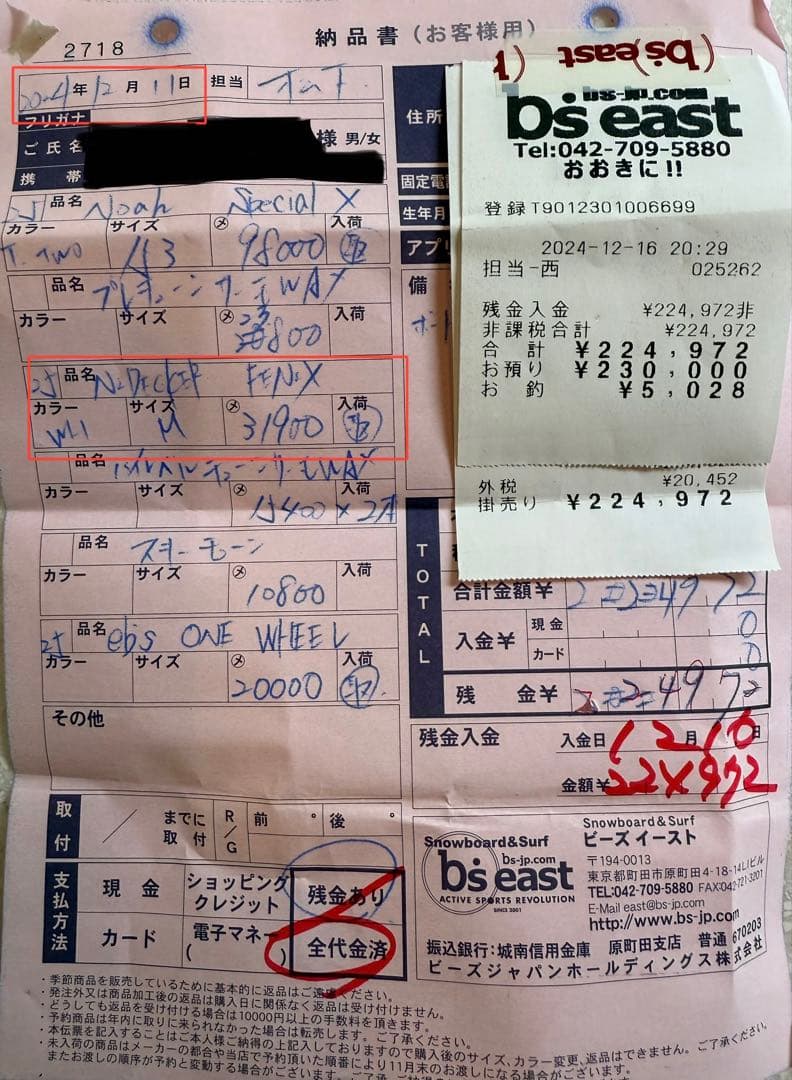 納品書(お客様用)
2718
2024年12月11日 担当
フリガナ
ご氏名
様 男/女
携帯
25 品名 Noah Special X
カラー サイズ 入荷
T. TWO 153 98000
品名 プレチューン サーモWAX
カラー サイズ 入荷
25 品名 NIDECKER FENIX
カラー サイズ 入荷
WH M 31900
品名 WAX
カラー サイズ 入荷
15400×2
品名
カラー サイズ 入荷
10800
25 品名 ebs ONE WHEEL
カラー サイズ 入荷
20000
その他
取付
までに取付
R/G
前 ° 後 °
支払方法
現金 ショッピングクレジット 残金あり
カード 電子マネー( ) 全代金済
住所
固定電
生年月
アプリ
備
(bs east)
bs-jp.com
b's east
Tel:042-709-5880
おおきに!!
登録T9012301006699
2024-12-16 20:29
担当-西 025262
残金入金 ¥224,972非
非課税合計 ¥224,972
合計 ¥224,972
お預り ¥230,000
お釣 ¥5,028
外税 ¥20,452
掛売り ¥224,972
TOTAL
合計金額¥ 224972
入金¥ 現金 0
カード 0
残金¥ 224972
残金入金 入金日 12月16日
金額¥ 224972
Snowboard&Surf
bs-jp.com
b's east
ACTIVE SPORTS REVOLUTION
SINCE 2001
Snowboard&Surf
ビーズ イースト
〒194-0013
東京都町田市原町田4-18-14LIビル
TEL:042-709-5880 FAX:042-721-3201
E-Mail east@bs-jp.com
http://www.bs-jp.com
振込銀行:城南信用金庫 原町田支店 普通 670203
ビーズジャパンホールディングス株式会社
・季節商品を販売しているために基本的に返品はご遠慮ください。
・発注外又は商品加工後の返品は購入日に関係なく返品は受け付けません。
・どうしても返品を受け付ける場合は10000円以上の手数料を頂きます。
・予約商品は年内に取りに来られなかった場合は転売します。ご了承ください。
・本伝票を記入することはご本人様ご納得の上記入しておりますので購入後のサイズ、カラー変更、返品はできません。ご了承ください。
・未入荷の商品はメーカーの都合や当店で予約頂いた順番により11月末のお渡しになる場合がございます。
またお渡しの順序が予約と変動する場合がございます。ご了承